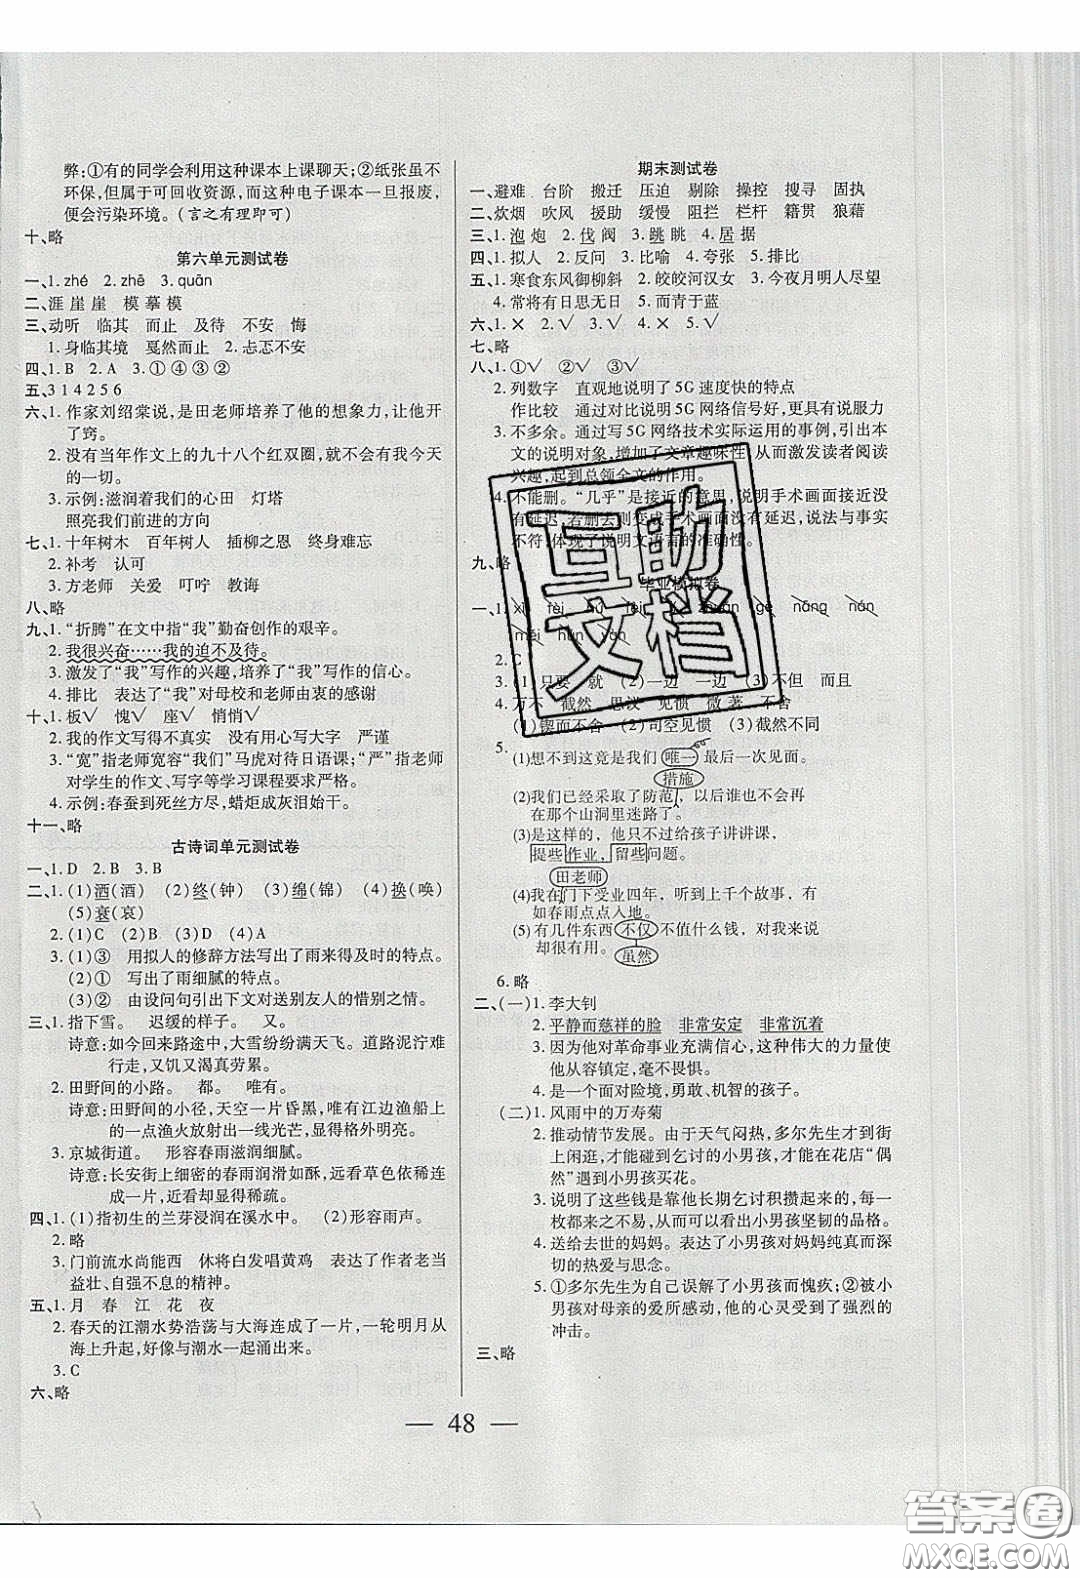 弊:①有的同学会利用这种课本上课聊天;②纸张虽不
环保,但属于可回收资源,而这种电子课本一旦报废,
便会污染环境。(言之有理即可)
十、略
第六单元测试卷
一、1. zhé 2. zhē 3. quān
二、涯 崖 崖 模 摹 模
三、动听 临其 而止 及待 不安 悔
1. 身临其境 戛然而止 2. 忐忑不安
四、1. B 2. A 3. ①④③②
五、3 1 4 2 5 6
六、1. 作家刘绍棠说,是田老师培养了他的想象力,让他开
了窍。
2. 没有当年作文上的九十八个红双圈,就没有我今天
的一切。
3. 示例:滋润着我们的心田 灯塔
照亮我们前进的方向
七、1. 十年树木 百年树人 插柳之恩 终身难忘
2. 补考 认可
3. 方老师 关爱 叮咛 教诲
八、略
九、1. “折腾”在文中指“我”勤奋创作的艰辛。
2. 我很兴奋……我的迫不及待。
3. 激发了“我”写作的兴趣,培养了“我”写作的信心。
4. 排比 表达了“我”对母校和老师由衷的感谢
十、1. 板✓ 愧✓ 座✓ 悄悄✓
2. 我的作文写得不真实 没有用心写大字 严谨
3. “宽”指老师宽容“我们”马虎对待日语课;“严”指老师
对学生的作文、写字等学习课程要求严格。
4. 示例:春蚕到死丝方尽,蜡炬成灰泪始干。
十一、略
古诗词单元测试卷
一、1. D 2. B 3. B
二、1. (1)洒(酒) (2)终(钟) (3)绵(锦) (4)换(唤)
(5)衰(哀)
2. (1)C (2)B (3)D (4)A
3. (1)③ 用拟人的修辞方法写出了雨来得及时的特点。
(2)① 写出了雨细腻的特点。
(3)② 由设问句引出下文对送别友人的惜别之情。
三、1. 指下雪。 迟缓的样子。 又。
诗意:如今回来路途中,大雪纷纷满天飞。道路泥泞难
行走,又饥又渴真劳累。
2. 田野间的小路。 都。 唯有。
诗意:田野间的小径,天空一片昏黑,唯有江边渔船上
的一点渔火放射出一线光芒,显得格外明亮。
3. 京城街道。 形容春雨滋润细腻。
诗意:长安街上细密的春雨润滑如酥,远看草色依稀连
成一片,近看却显得稀疏。
四、1. (1)指初生的兰芽浸润在溪水中。 (2)形容雨声。
2. 略
3. 门前流水尚能西 休将白发唱黄鸡 表达了作者老当
益壮、自强不息的精神。
五、1. 月 春 江 花 夜
2. 春天的江潮水势浩荡与大海连成了一片,一轮明月从
海上升起,好像与潮水一起涌出来。
3. C
六、略
期末测试卷
一、避难 台阶 搬迁 压迫 剔除 操控 搜寻 固执
二、炊烟 吹风 援助 缓慢 阻拦 栏杆 籍贯 狼藉
三、1. 泡 炮 2. 伐 阀 3. 跳 眺 4. 居 据
四、1. 拟人 2. 反问 3. 比喻 4. 夸张 5. 排比
五、1. 寒食东风御柳斜 2. 皎皎河汉女 3. 今夜月明人尽望
4. 常将有日思无日 5. 而青于蓝
六、1. × 2. ✓ 3. ✓ 4. × 5. ✓
七、略
八、1. ①✓ ②✓ ③✓
2. 列数字 直观地说明了5G速度快的特点
作比较 通过对比说明5G网络信号好,更具说服力
3. 不多余。通过写5G网络技术实际运用的事例,引出本
文的说明对象,增加了文章趣味性,从而激发读者阅读
兴趣,起到总领全文的作用。
4. 不能删。“几乎”是接近的意思,说明手术画面接近没
有延迟,若删去则变成手术画面没有延迟,说法与事实
不符,体现了说明文语言的准确性。
九、略
毕业模拟卷
一、1. gē nāng nán
2. C
3. (1)只要 就 (2)一边 一边 (3)不但 而且
4. 万不 截然 思议 见惯 微 著 不舍
(1)锲而不舍 (2)司空见惯 (3)截然不同
5.
(1)想不到这竟是我们唯一最后一次见面。
措施
(2)我们已经采取了防范,以后谁也不可能
在那个山洞里迷路了。
(3)是这样的,他只不过给孩子讲讲课,
提些作业,留些问题。
田老师
(4)我在门下受业四年,听到上千个故事,有
如春雨点点入地。
(5)有几件东西不仅不值什么钱,对我来说
却很有用。 虽然
6. 略
二、(一)1. 李大钊
2. 平静而慈祥的脸 非常安定 非常沉着
3. 因为他对革命事业充满信心,这种伟大的力量让
他从容镇定,毫不畏惧。
4. 是一个面对险境,勇敢、机智的孩子。
(二)1. 风雨中的万寿菊
2. 推动情节发展。由于天气闷热,多尔先生才到街
上闲逛,才能碰到乞讨的小男孩,才能在花店“偶
然”遇到小男孩买花。
3. 说明了这些钱是靠他长期乞讨积攒起来的,每一
枚都来之不易,从而突出了小男孩坚韧的品格。
4. 送给去世的妈妈。表达了小男孩对妈妈纯真而深
切的热爱与思念。
5. ①多尔先生为自己误解了小男孩而愧疚;②被小
男孩对母亲的爱所感动,他的心灵受到了强烈的
冲击。
三、略
— 48 —
互助
文档
答案卷
MXQE.COM